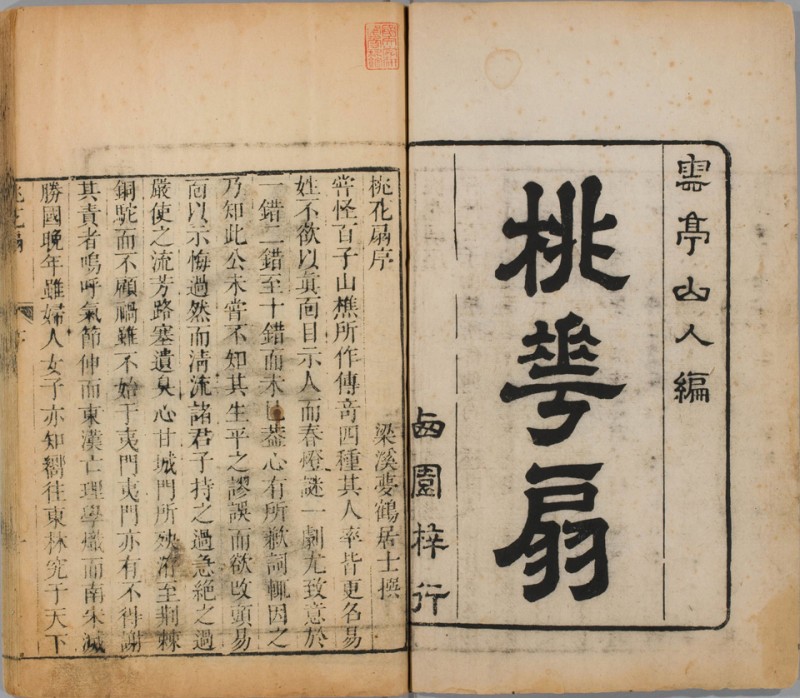 雲亭山人編
桃華扇
西園梓行
桃花扇序
梁溪夢鶴居士撰
嘗怪百子山樵所作傳奇四種其人率皆更名易
姓不欲以真面目示人而春燈謎一劇尤致意於
一錯二錯至十錯而未已葢心有所歉詞輒因之
乃知此公未嘗不知其生平之謬誤而欲改頭易
面以示悔過然而清流諸君子持之過急絕之過
嚴使之流芳路塞遺臭心甘城門所殃洊至荆棘
銅駝而不顧禍雖不始于夷門夷門亦有不得謝
其責者嗚呼氣節伸而東漢亡理學熾而南宋滅
勝國晚年雖婦人女子亦知嚮往東林究于天下
桃花扇